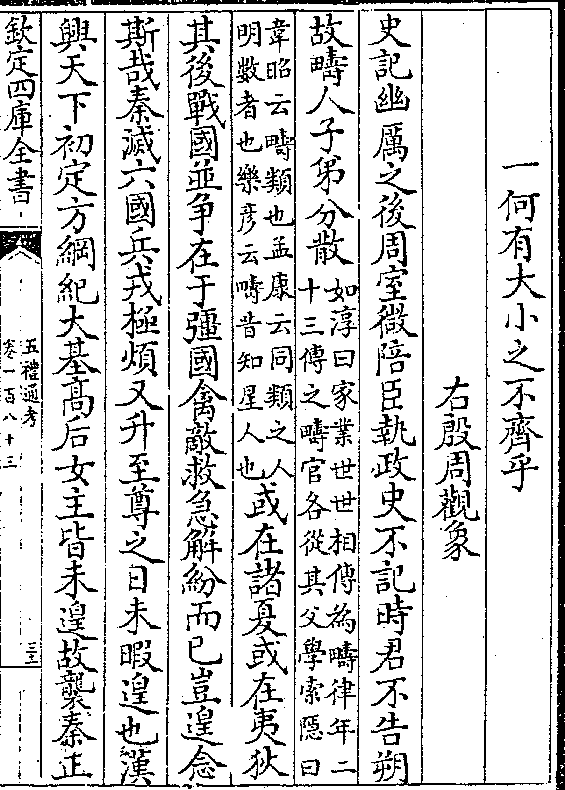 一何有大小之不齊乎
右殷周觀象
史記幽厲之後周室微陪臣執政史不記時君不告朔
故疇人子弟分散如淳曰家業世世相傳為疇律年二
十三傳之疇官各從其父學索隱曰
韋昭云疇類也孟康云同類之人
明數者也樂彦云疇昔知星人也或在諸夏或在夷狄
其後戰國並争在于彊國禽敵救急解紛而已豈遑念
斯哉秦滅六國兵戎極煩又升至尊之日未暇遑也漢
興天下初定方綱紀大基高后女主皆未遑故襲秦正
欽定四庫全書
五禮通考
卷一百八十三
三十二